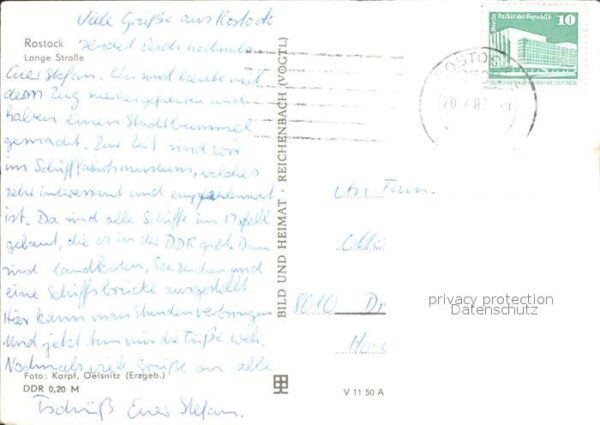 Viele Grüße aus Rostock
Rostock
Lange Straße
sendet Euch nochmals
Euer Stefan. Wir sind heute mit
dem Zug hierher gefahren und
haben einen Stadtbummel
gemacht. Zur Zeit sind wir
im Schifffahrtsmuseum, welches
sehr interessant und empfehlenswert
ist. Da sind alle Schiffe im Modell
gebaut, die es in der DDR gibt. Dann
sind Landkarten, Seezeichen und
eine Schiffsbrücke ausgestellt.
Hier kann man Stunden verbringen
Und jetzt tun mir die Füße weh.
Nochmals viele Grüße an alle
Foto: Karpf, Oelsnitz (Erzgeb.)
DDR 0,20 M
Tschüß Euer Stefan.
BILD UND HEIMAT · REICHENBACH (VOGTL)
V 11 50 A
Berlin Palast der Republik
10
An Fam.
8010 Dr
privacy protection
Datenschutz